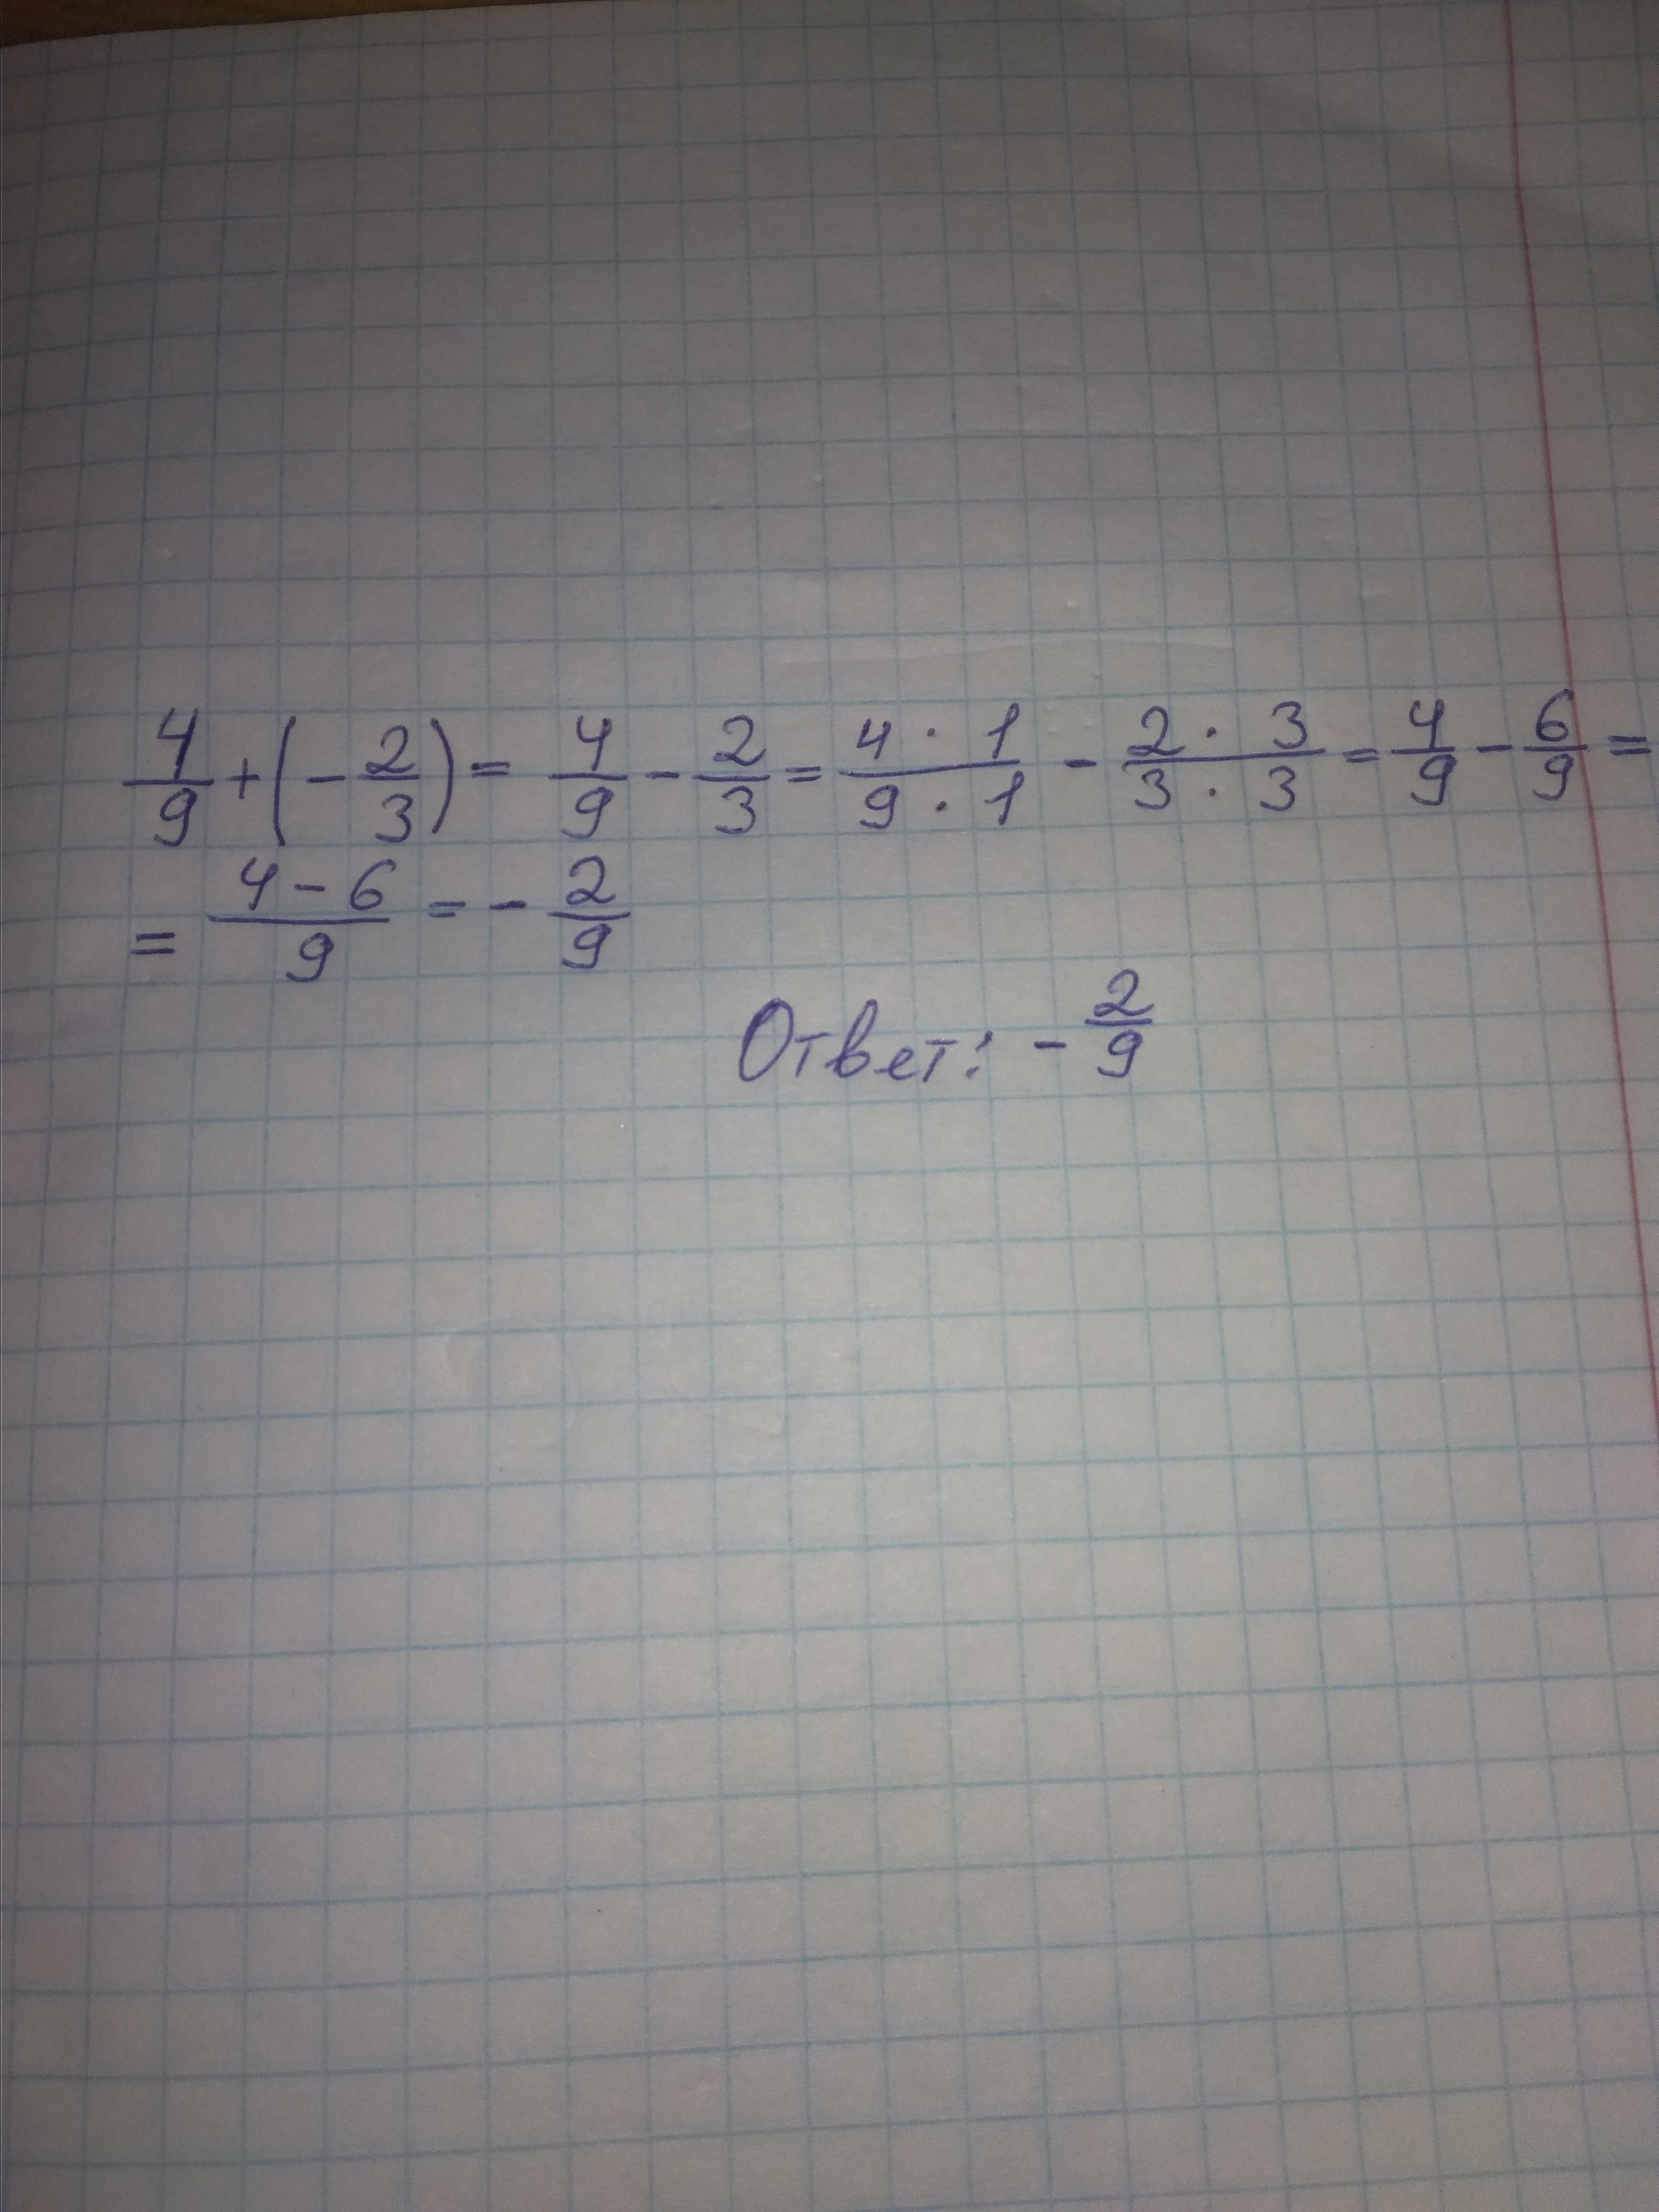 4/9 + (- 2/3) = 4/9 - 2/3 = 4 · 1/9 · 1 - 2 · 3/3 · 3 = 4/9 - 6/9 =
= 4 - 6/9 = - 2/9
Ответ: - 2/9